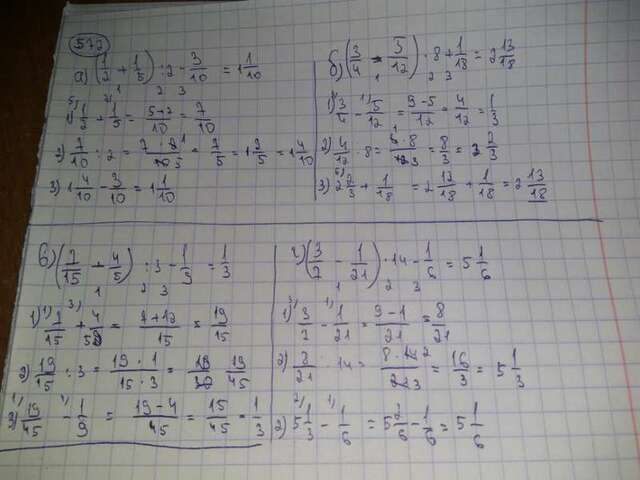 572
а) (1/2 + 1/5) : 2 - 3/10 = 1 1/10
1 2 3
1) 1/2 + 1/5 = 5+2/10 = 7/10
2) 7/10 · 2 = 7·2 1/10 5 = 7/5 = 1 2/5 = 1 4/10
3) 1 4/10 - 3/10 = 1 1/10
б) (3/4 - 5/12) · 8 + 1/18 = 2 13/18
1 2 3
1) 3/4 - 5/12 = 9-5/12 = 4/12 = 1/3
2) 4/12 · 8 = 8/3 = 2 2/3
3) 2 2/3 + 1/18 = 2 12/18 + 1/18 = 2 13/18
в) (7/15 + 4/5) : 3 - 1/9 = 1/3
1 2 3
1) 7/15 + 4/5 = 7+12/15 = 19/15
2) 19/15 : 3 = 19·1/15·3 = 19/45
3) 19/45 - 1/9 = 19-4/45 = 15/45 = 1/3
г) (3/7 - 1/21) · 14 - 1/6 = 5 1/6
1 2 3
1) 3/7 - 1/21 = 9-1/21 = 8/21
2) 8/21 · 14 = 8·14 2/21 3 = 16/3 = 5 1/3
3) 5 1/3 - 1/6 = 5 2/6 - 1/6 = 5 1/6